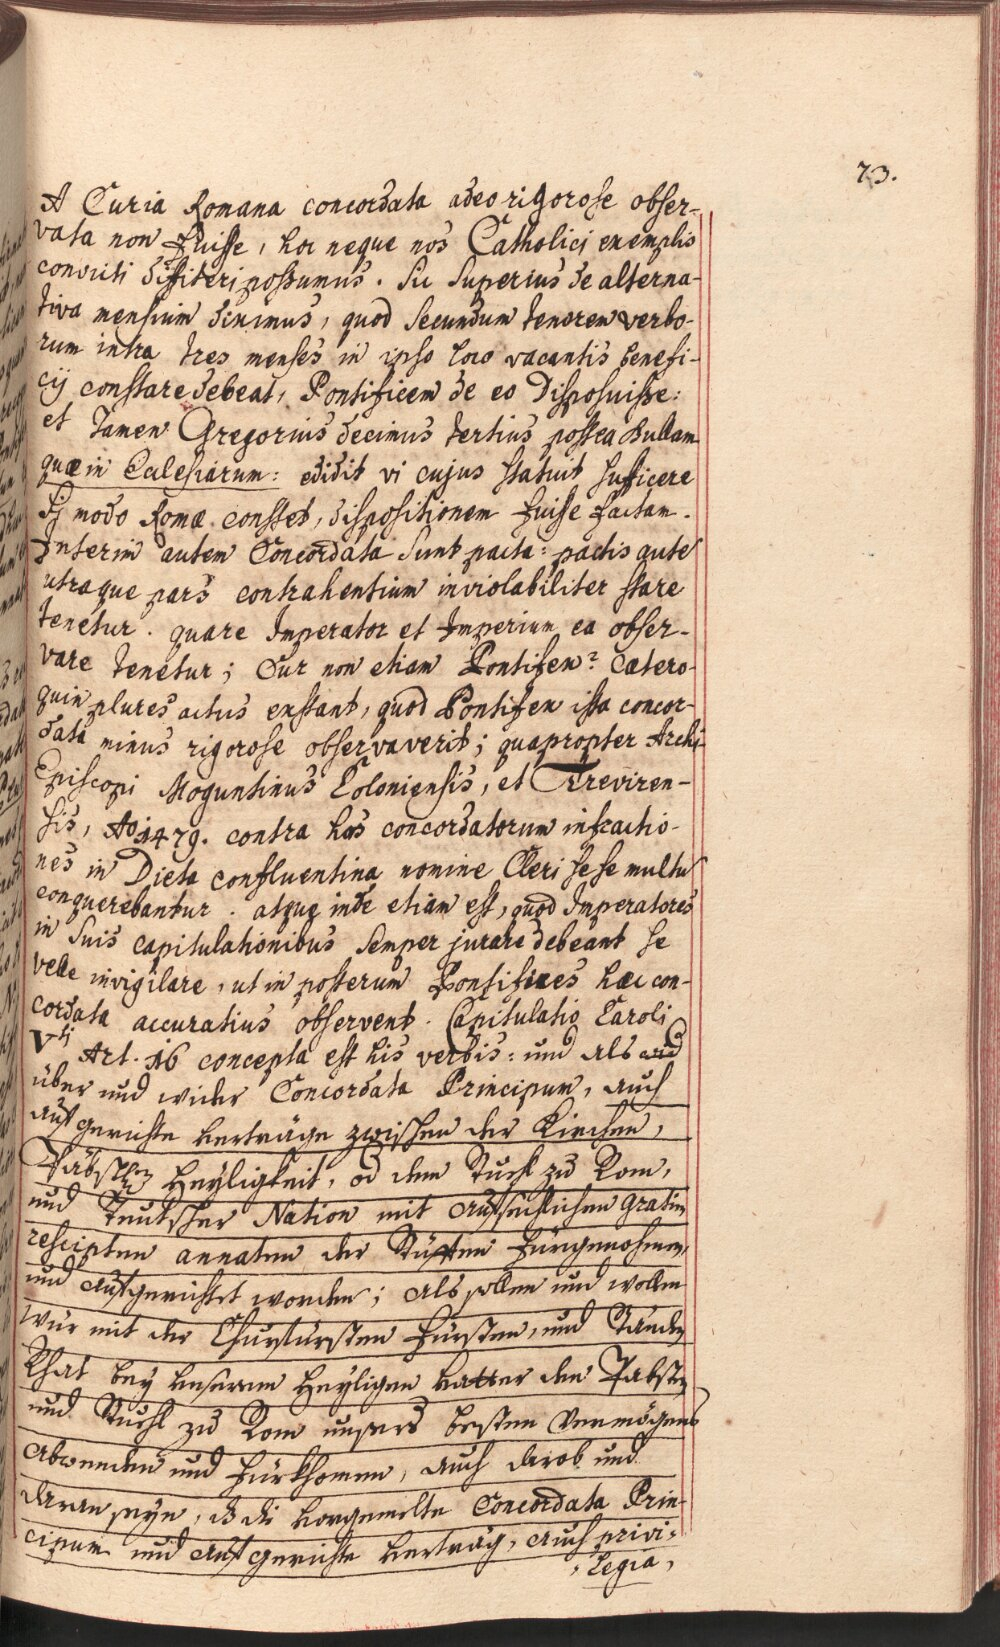 73.
A Curia Romana concordata adeo rigorose obser-
vata non fuisse, hoc neque nos Catholici exemplis
convicti diffiteri possumus. Sic superius de alterna-
tiva mensium diximus, quod secundum tenorem verbo-
rum intra tres menses in ipso loco vacantis benefi-
cij constare debeat, Pontificem de eo disposuisse:
et tamen Gregorius decimus tertius postea Bullam
quæ in Ecclesiarum: edidit vi cujus statuit sufficere
si modo Romæ constet, dispositionem fuisse factam.
Interim autem Concordata sunt pacta: pactis aute
utraque pars contrahentium inviolabiliter stare
tenetur. quare Imperator et Imperium ea obser-
vare tenetur; Cur non etiam Pontifex? Cætero-
quin plures actus exstant, quod Pontifex ista concor-
data minus rigorose observaverit; quapropter Archi-
Episcopi Moguntinus Coloniensis, et Treviren-
sis, Ao 1479. contra has concordatorum infractio-
nes in Dieta confluentina nomine Cleri sese multu
conquerebantur. atque inde etiam est, quod Imperatores
in suis capitulationibus semper jurare debeant se
velle invigilare, ut in posterum Pontifices hæc con-
cordata accuratius observent. Capitulatio Caroli
Vti Art. 16 concepta est his verbis: und als
über und wider Concordata Principum, auch
aufgerichte Verträge zwischen der Kirchen,
Päbstlin Heyligkeit, od dem Stuhl zu Rom,
und Teutscher Nation mit gratien
rescripten annaten der Stüfften fürgenohmen,
und aufgerichtet worden; als sollen und wollen
wür mit der Churfürsten Fürsten, und Stände
Rhat bey unserem Heyligen Vatter den Pabste
und Stuhl zu Rom unsers besten Vermögens
abwenden und fürkhomen, auch darob und
daran seyn, dß die vorgemelte Concordata Prin-
cipum und aufgerichte Verträg, auch privi-
legia,